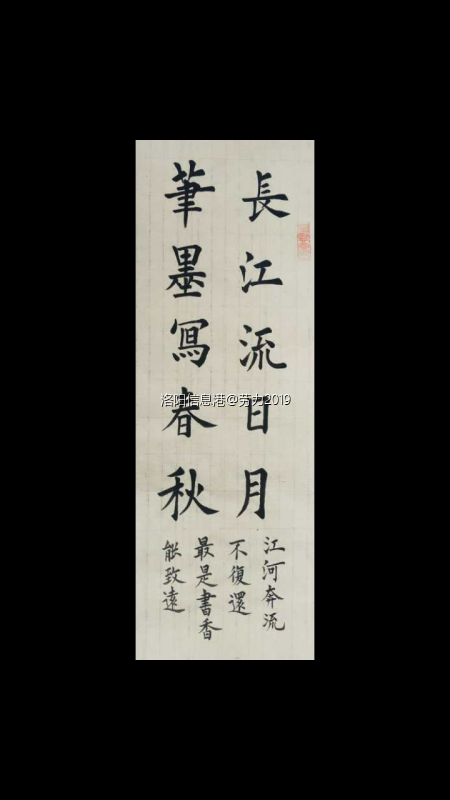 長江流日月
筆墨寫春秋
江河奔流
不復還
最是書香
能致遠
洛阳信息港@劳力2019